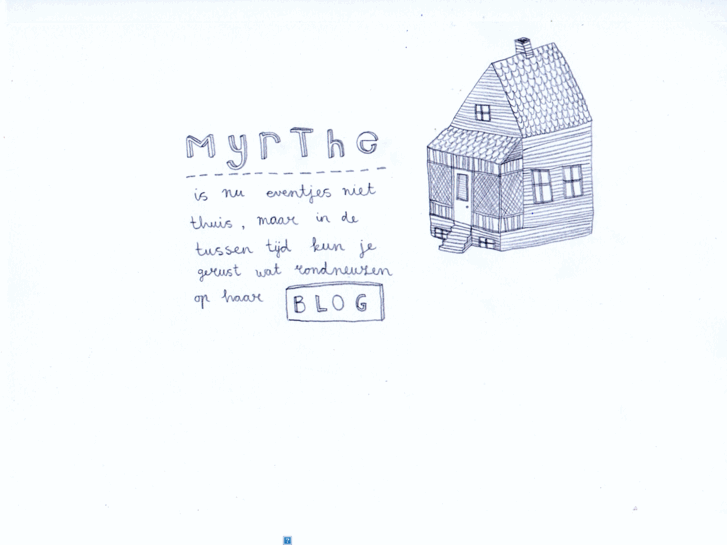 Myrthe
is nu eventjes niet
thuis, maar in de
tussen tijd kun je
gerust wat rondneuzen
op haar BLOG